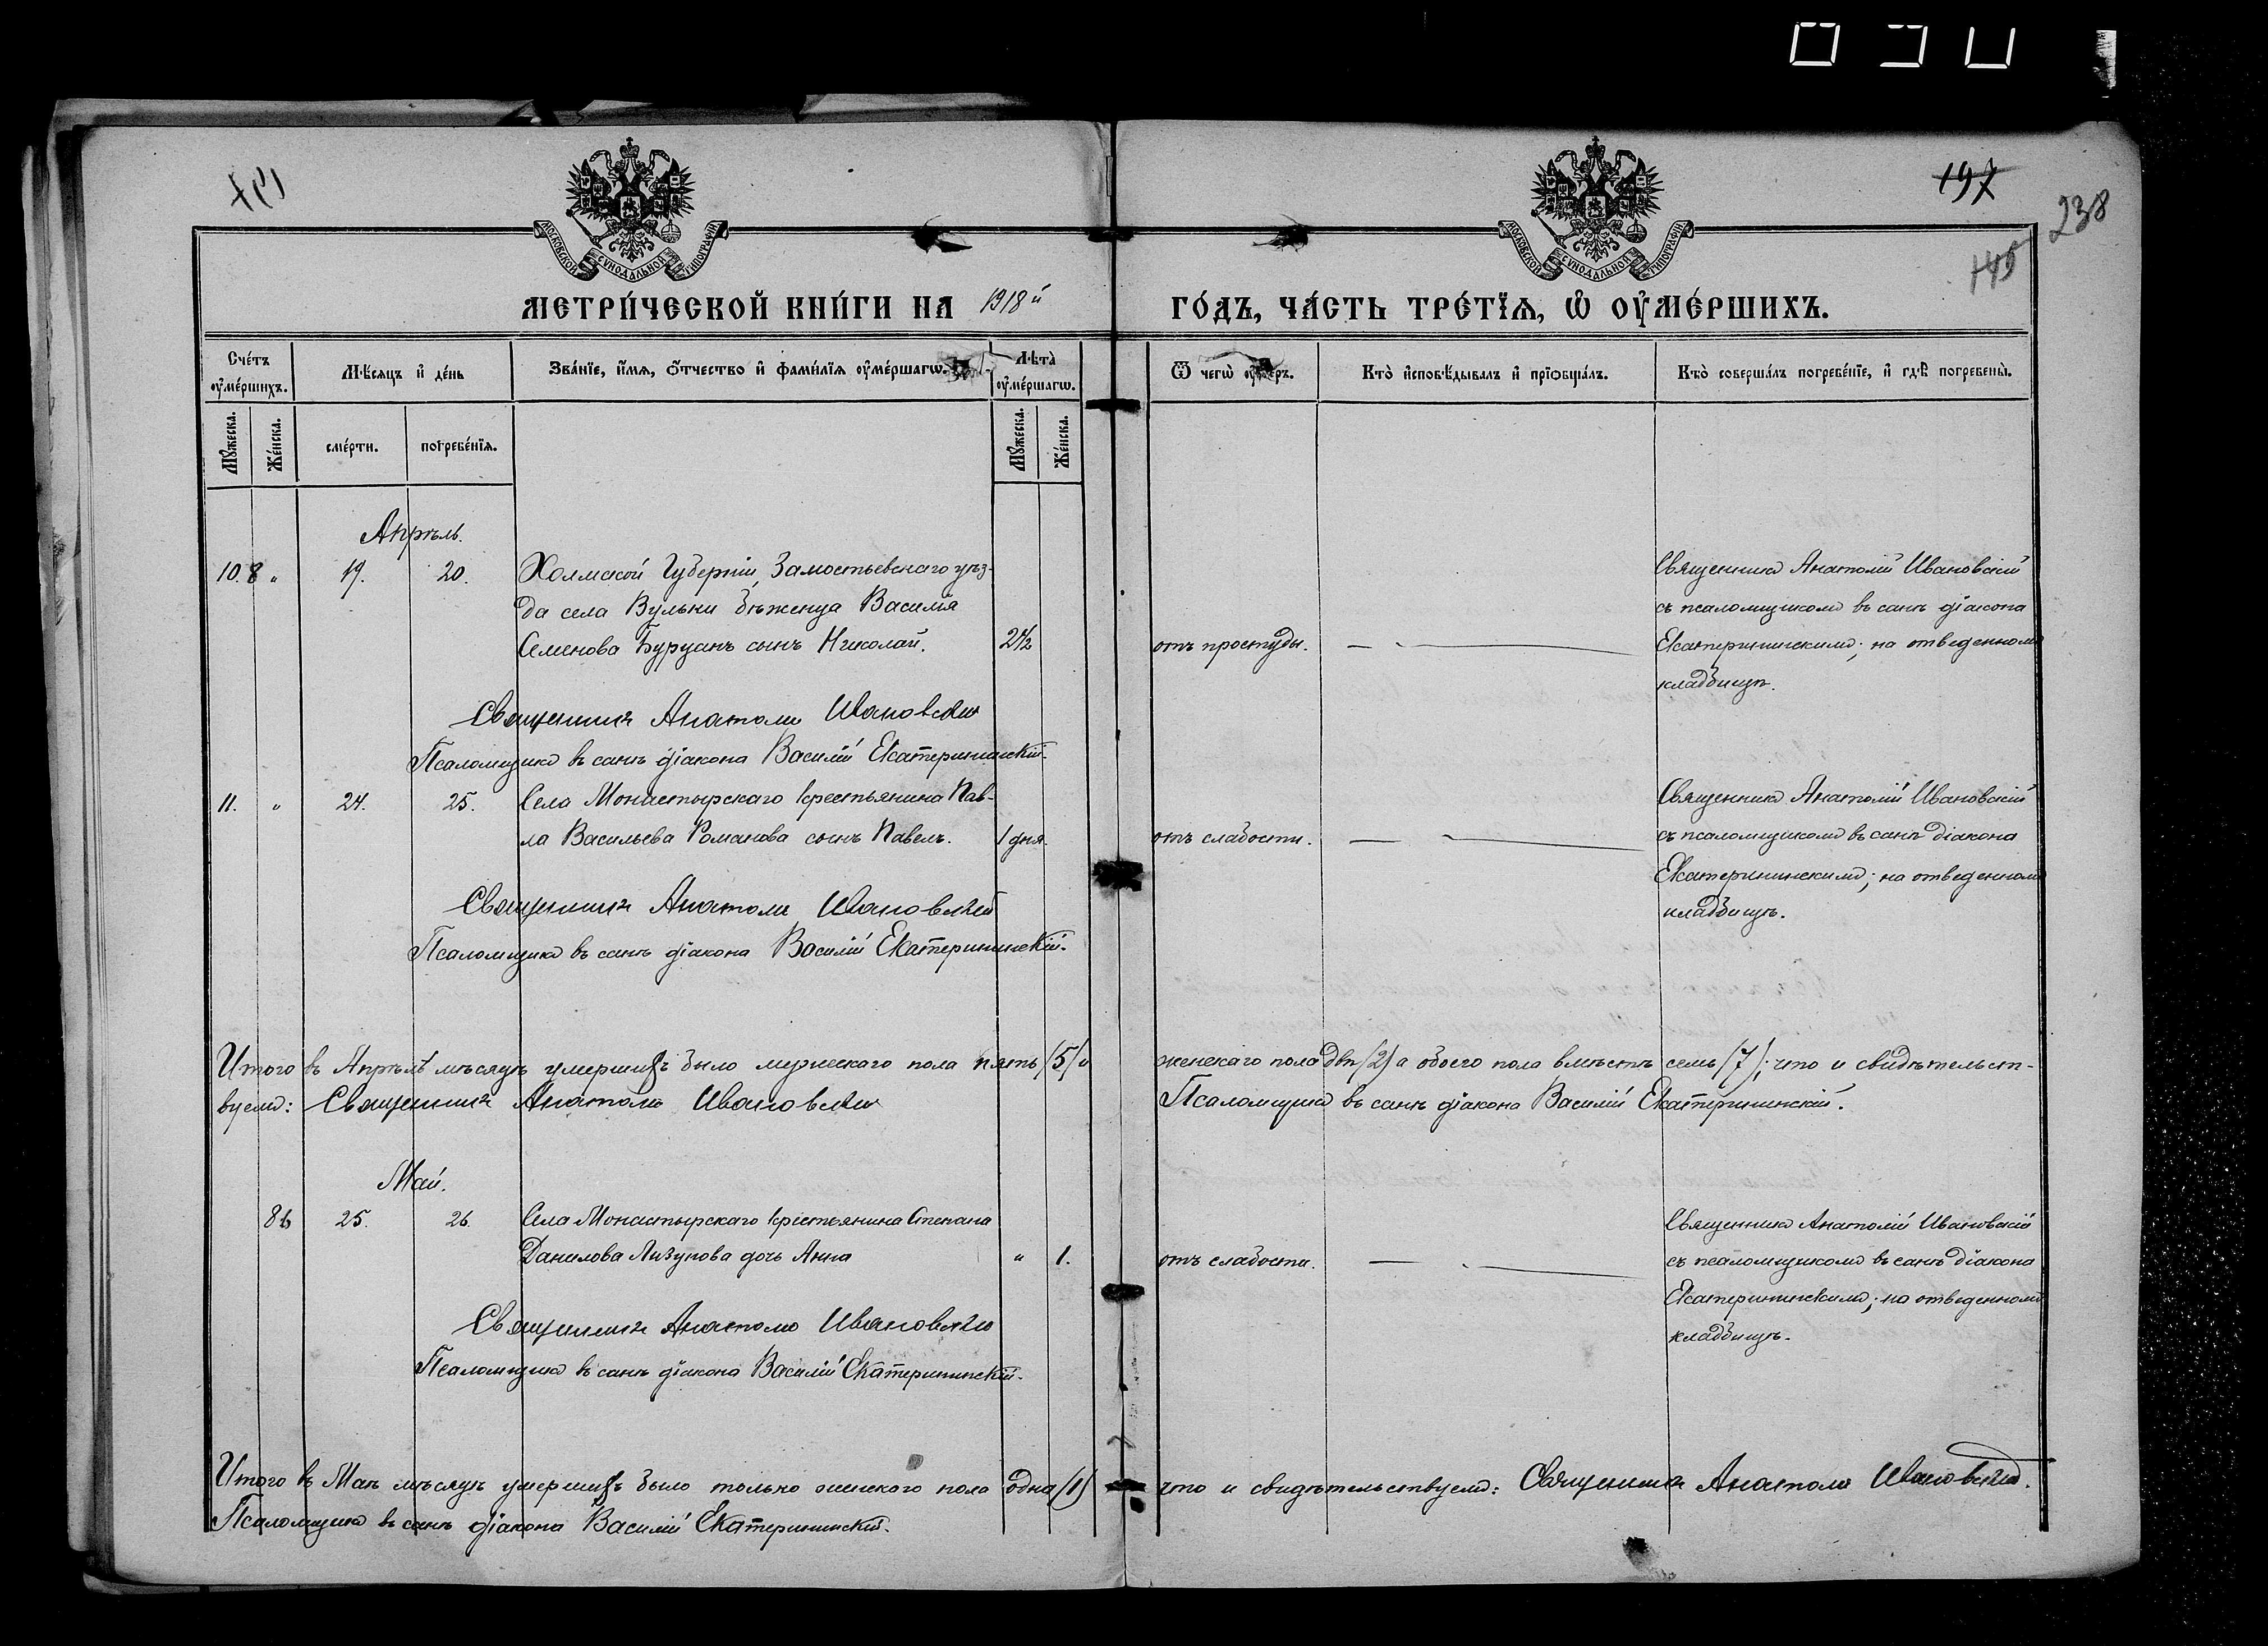 197
238
145
МОСКОВСКОЙ СѴНОДАЛЬНОЙ ТИПОГРАФІИ
МОСКОВСКОЙ СѴНОДАЛЬНОЙ ТИПОГРАФІИ
МЕТРИ́ЧЕСКОЙ КНИ́ГИ НА 1918й ГО́ДЪ, ЧА́СТЬ ТРЕ́ТЇѦ, Ѽ ОУ҆МЕ́РШИХЪ.
Сче́тъ оу҆ме́ршихъ.
Мѣ́сяцъ и҆ де́нь
Зва́нїе, и҆́мѧ, ѻ҆́тчество и҆ фами́лїѧ оу҆ме́ршагѡ.
Лѣта̀ оу҆ме́ршагѡ.
Ѿ чегѡ̀
Кто̀ и҆сповѣ́дывалъ и҆ прїѻбща́лъ.
Кто̀ соверша́лъ погребе́нїе, и҆ гдѣ̀ погребены̀.
Мꙋ́жеска.
Же́нска.
сме́рти.
погребе́нїѧ.
Мꙋ́жеска.
Же́нска.
Апрѣль.
10. 8 " 19. 20. Холмской Губерніи, Замостьевскаго уѣз-
да села Вульки бѣженца Василія
Семенова Буруанъ сынъ Николай. 2½ отъ простуды.
Священникъ Анатолій Ивановскій
съ псаломщикомъ въ санѣ діакона
Екатерининскимъ; на отведенномъ
кладбищѣ.
Священникъ Анатолій Ивановскій
Псаломщикъ въ санѣ діакона Василій Екатерининскій.
11. " 24. 25. Села Монастырскаго крестьянина Пав-
ла Васильева Романова сынъ Павелъ. 1 дня. отъ слабости.
Священникъ Анатолій Ивановскій
съ псаломщикомъ въ санѣ діакона
Екатерининскимъ; на отведенномъ
кладбищѣ.
Священникъ Анатолій Ивановскій
Псаломщикъ въ санѣ діакона Василій Екатерининскій.
Итого въ Апрѣлѣ мѣсяцѣ умершихъ было мужескаго пола пять (5) и женскаго пола двѣ (2) а обоего пола вмѣстѣ семь (7); что и свидѣтельст-
вуемъ: Священникъ Анатолій Ивановскій Псаломщикъ въ санѣ діакона Василій Екатерининскій.
Май.
25. 26. Села Монастырскаго крестьянина Степана
Данилова Лизунова дочь Анна " 1. отъ слабости.
Священникъ Анатолій Ивановскій
съ псаломщикомъ въ санѣ діакона
Екатерининскимъ; на отведенномъ
кладбищѣ.
Священникъ Анатолій Ивановскій
Псаломщикъ въ санѣ діакона Василій Екатерининскій.
Итого въ Маѣ мѣсяцѣ умершихъ было только женскаго пола одна (1) что и свидѣтельствуемъ: Священникъ Анатолій Ивановскій.
Псаломщикъ въ санѣ діакона Василій Екатерининскій.